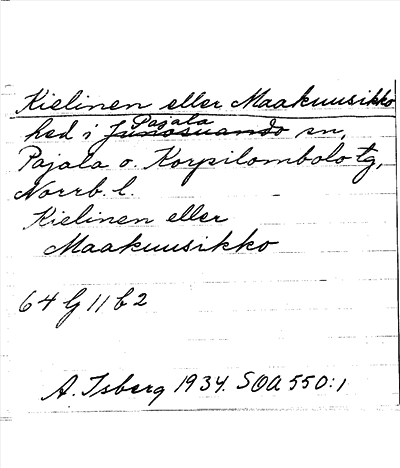 Kielinen eller Maakuusikko
hed i Pajala Junosuando sn,
Pajala o. Korpilombolo tg,
Norrb. l.
Kielinen eller
Maakuusikko
64 G 11 b 2
A. Isberg 1934. SOA 550:1